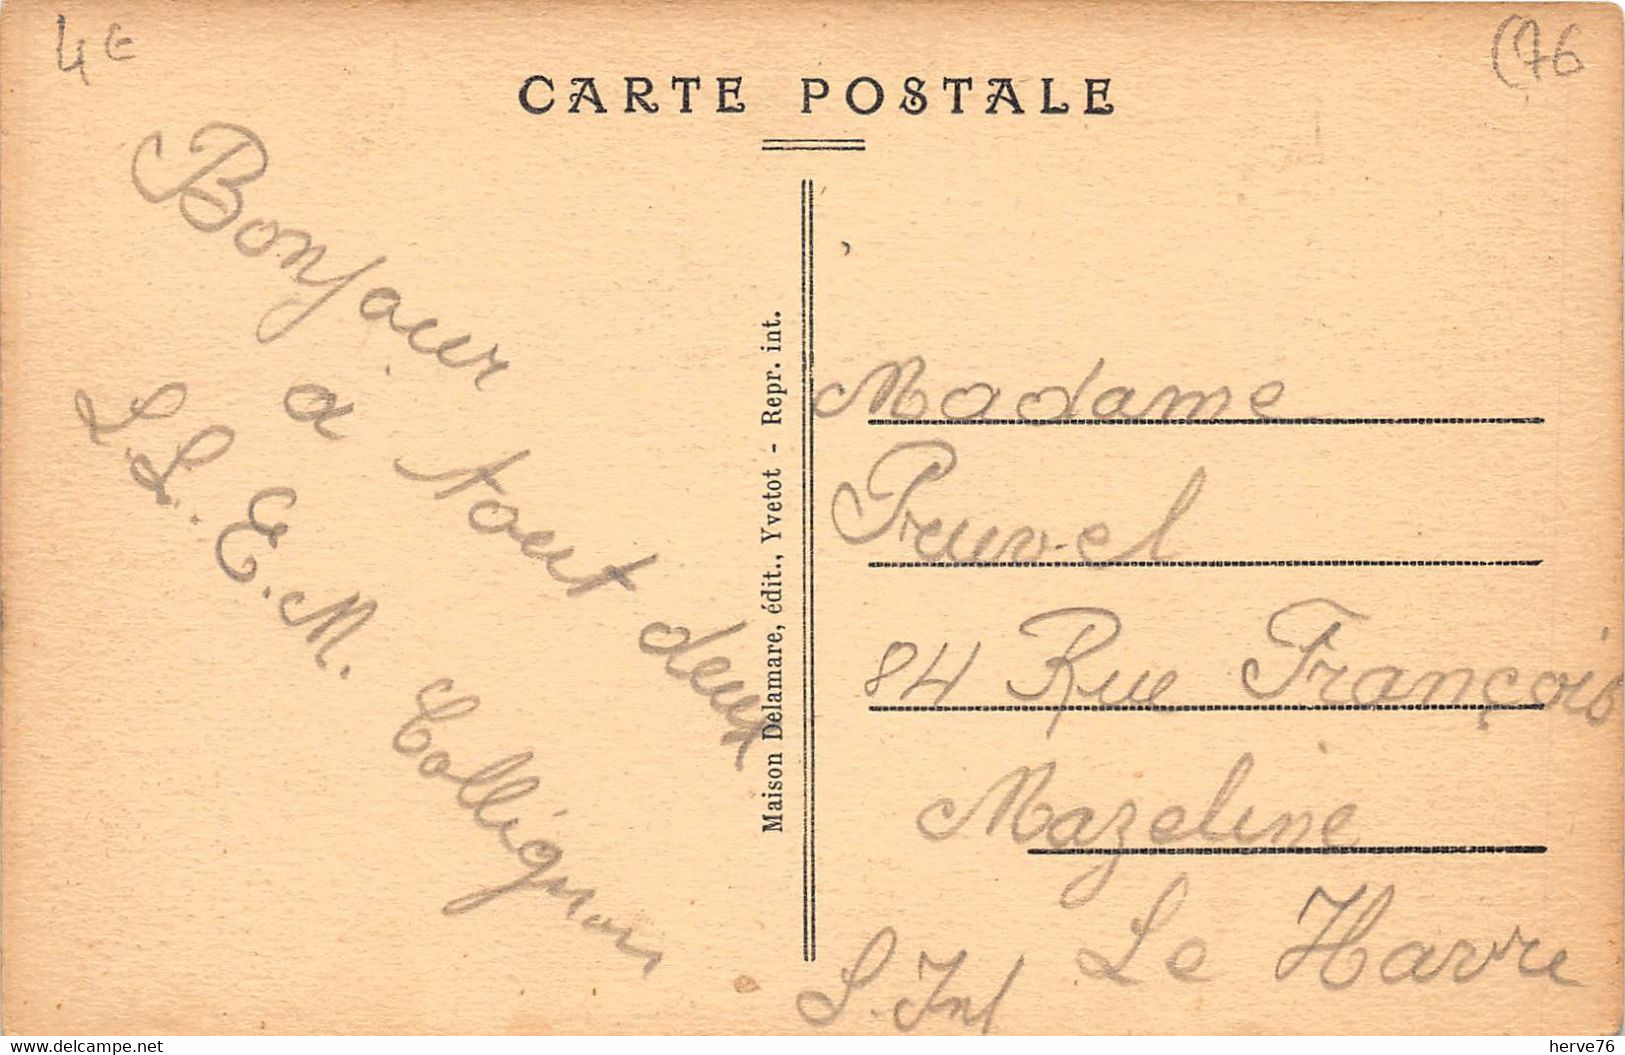 4€
(76
CARTE POSTALE
Bonjour
à
tout deux
L.L.E.M. Collignon
Maison Delamare, édit., Yvetot - Repr. int.
Madame
Pruvel
84 Rue François
Mazeline
Le Havre
S. Inf
www.delcampe.net
herve76